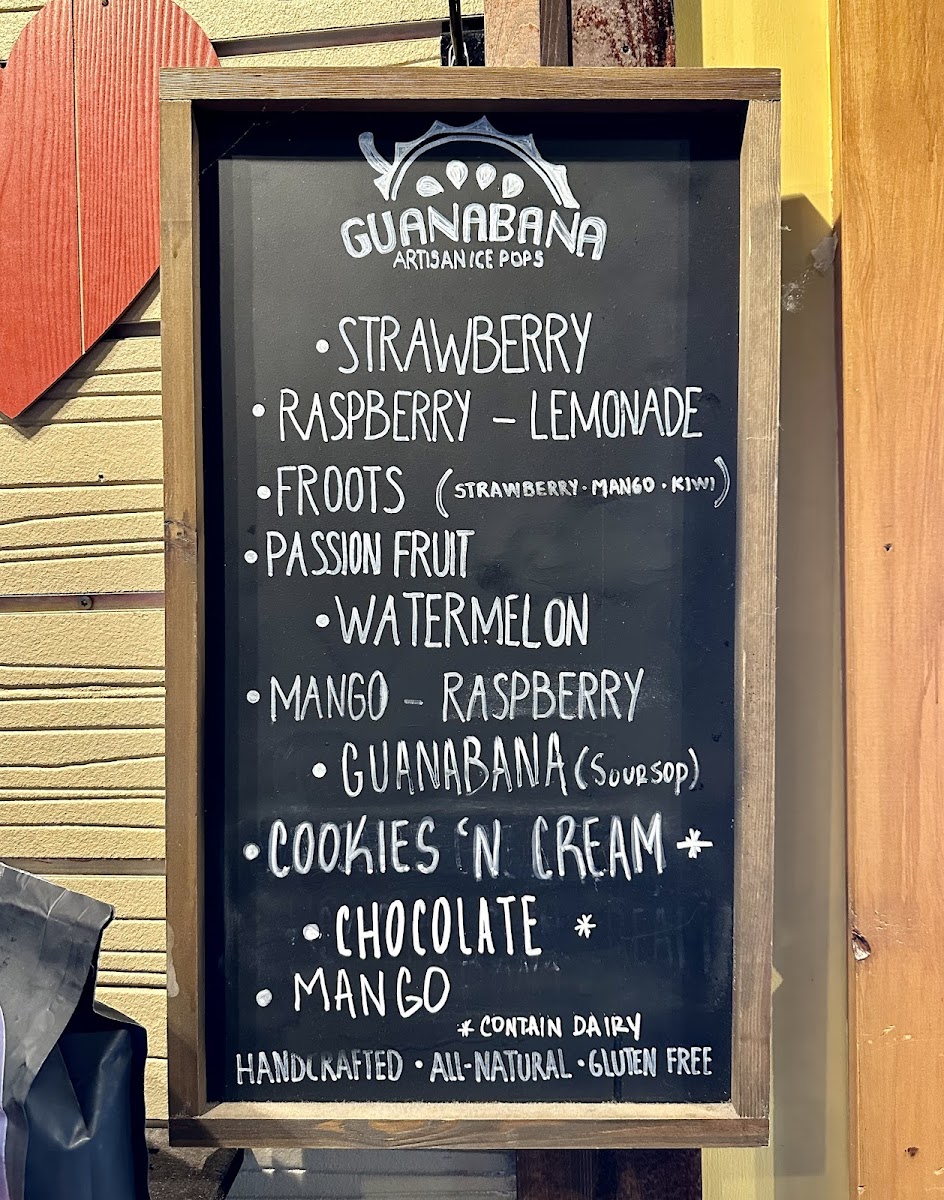 GUANABANA
ARTISAN ICE POPS
• STRAWBERRY
• RASPBERRY – LEMONADE
• FROOTS (STRAWBERRY · MANGO · KIWI)
• PASSION FRUIT
• WATERMELON
• MANGO – RASPBERRY
• GUANABANA (SOURSOP)
• COOKIES 'N CREAM *
• CHOCOLATE *
• MANGO
* CONTAIN DAIRY
HANDCRAFTED • ALL-NATURAL • GLUTEN FREE